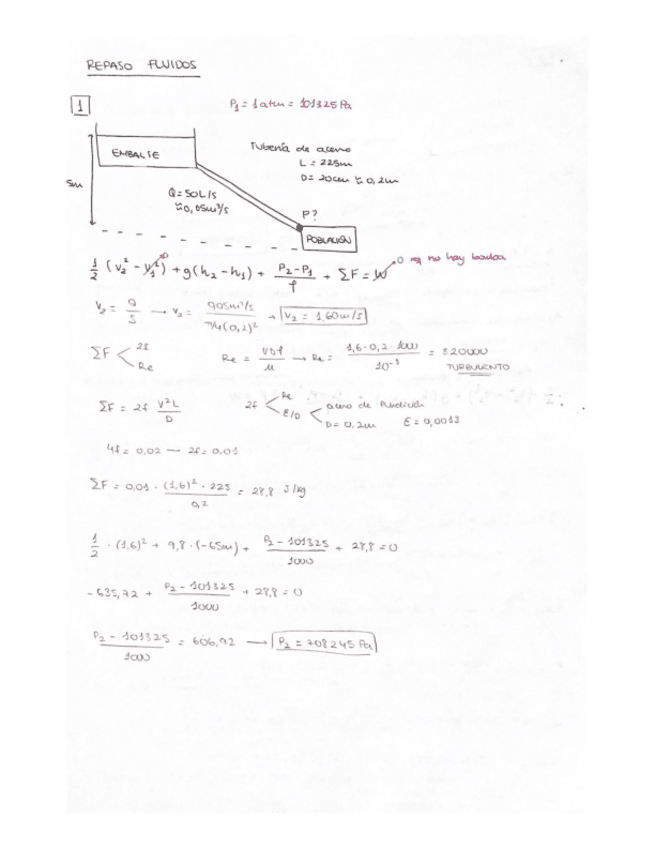 REPASO FLUIDOS
1
P₁ = 1 atm = 101325 Pa
EMBALSE
Tubería de acero
L = 225m
5m
D = 20cm ≈ 0,2m
Q = 50L/s
≈ 0,05m³/s
P?
POBLACIÓN
½ (v₂² - v₁²) + g(h₂ - h₁) + (P₂ - P₁)/ρ + ΣF = W
0
0 no hay bomba
v₂ = Q/S → v₂ = 0,05m³/s / π/4(0,2)² → v₂ = 1,60m/s
ΣF < 2f
Re
Re = vDρ/μ → Re = 1,6 · 0,2 · 1000 / 10⁻³ = 320000
TURBULENTO
ΣF = 2f v²L/D
2f < Re
ε/D < acero de
D = 0,2m
4f = 0,02 → 2f = 0,01
ΣF = 0,01 · (1,6)² · 225 / 0,2 = 28,8 J/kg
½ · (1,6)² + 9,8 · (-65m) + (P₂ - 101325)/1000 + 28,8 = 0
- 635,72 + (P₂ - 101325)/1000 + 28,8 = 0
(P₂ - 101325)/1000 = 606,92 → P₂ = 708245 Pa